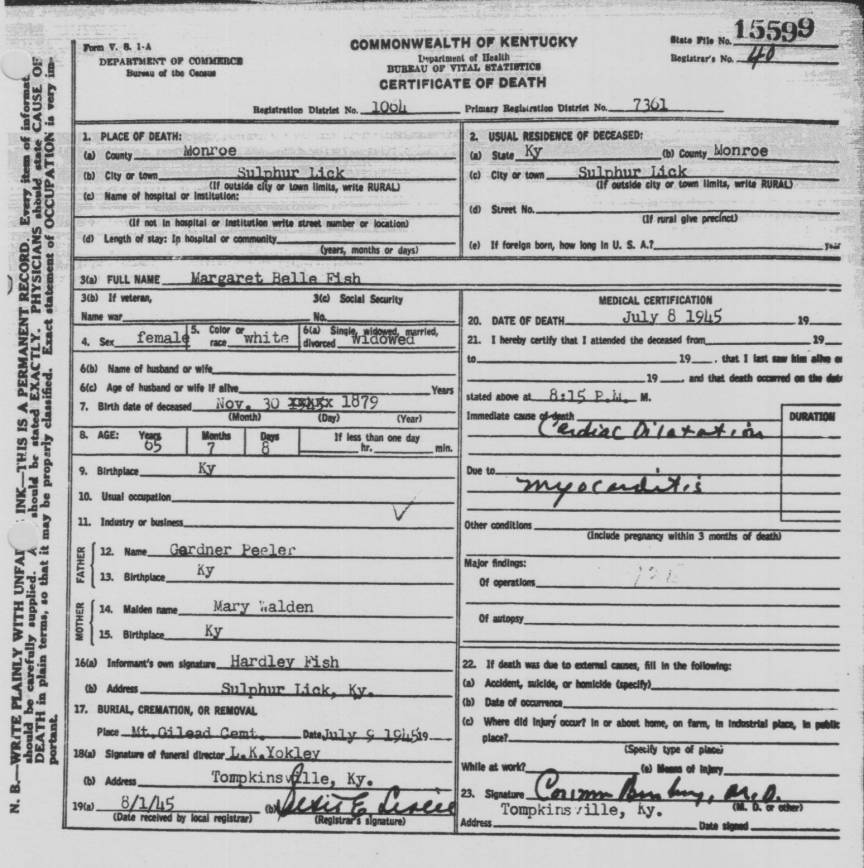 15599
Form V. S. 1-A
DEPARTMENT OF COMMERCE
Bureau of the Census
COMMONWEALTH OF KENTUCKY
Department of Health
BUREAU OF VITAL STATISTICS
CERTIFICATE OF DEATH
State File No.
Registrar's No. 40
Registration District No. 1064 Primary Registration District No. 7361
1. PLACE OF DEATH:
(a) County Monroe
(b) City or town Sulphur Lick
(If outside city or town limits, write RURAL)
(c) Name of hospital or institution:
(If not in hospital or institution write street number or location)
(d) Length of stay: In hospital or community
(years, months or days)
2. USUAL RESIDENCE OF DECEASED:
(a) State Ky (b) County Monroe
(c) City or town Sulphur Lick
(If outside city or town limits, write RURAL)
(d) Street No.
(If rural give precinct)
(e) If foreign born, how long in U. S. A.? year
3(a) FULL NAME Margaret Belle Fish
3(b) If veteran,
Name war
3(c) Social Security
No.
4. Sex female 5. Color or race white 6(a) Single, widowed, married, divorced widowed
6(b) Name of husband or wife
6(c) Age of husband or wife if alive Years
7. Birth date of deceased Nov. 30 1879
(Month) (Day) (Year)
8. AGE: Years Months Days If less than one day
65 7 8 hr. min.
9. Birthplace Ky
10. Usual occupation
11. Industry or business
FATHER
12. Name Gardner Peeler
13. Birthplace Ky
MOTHER
14. Maiden name Mary Walden
15. Birthplace Ky
16(a) Informant's own signature Hardley Fish
(b) Address Sulphur Lick, Ky.
17. BURIAL, CREMATION, OR REMOVAL
Place Mt. Gilead Cemt. Date July 9 1945 19
18(a) Signature of funeral director L.K.Yokley
(b) Address Tompkinsville, Ky.
19(a) 8/1/45 (b)
(Date received by local registrar) (Registrar's signature)
MEDICAL CERTIFICATION
20. DATE OF DEATH July 8 1945 19
21. I hereby certify that I attended the deceased from 19
to 19 , that I last saw him alive on
19 , and that death occurred on the date
stated above at 8:15 P.M. M.
Immediate cause of death DURATION
Cardiac Dilatation
Due to
Myocarditis
Other conditions
(Include pregnancy within 3 months of death)
Major findings:
Of operations
Of autopsy
22. If death was due to external causes, fill in the following:
(a) Accident, suicide, or homicide (specify)
(b) Date of occurrence
(c) Where did injury occur? In or about home, on farm, in industrial place, in public
place?
(Specify type of place)
While at work? (e) Means of injury
23. Signature M.D.
(M. D. or other)
Tompkinsville, Ky.
Address Date signed
N. B.—WRITE PLAINLY WITH UNFADING INK—THIS IS A PERMANENT RECORD. Every item of informat
should be carefully supplied. should be stated EXACTLY. PHYSICIANS should state CAUSE OF
DEATH in plain terms, so that it may be properly classified. Exact statement of OCCUPATION is very im-
portant.